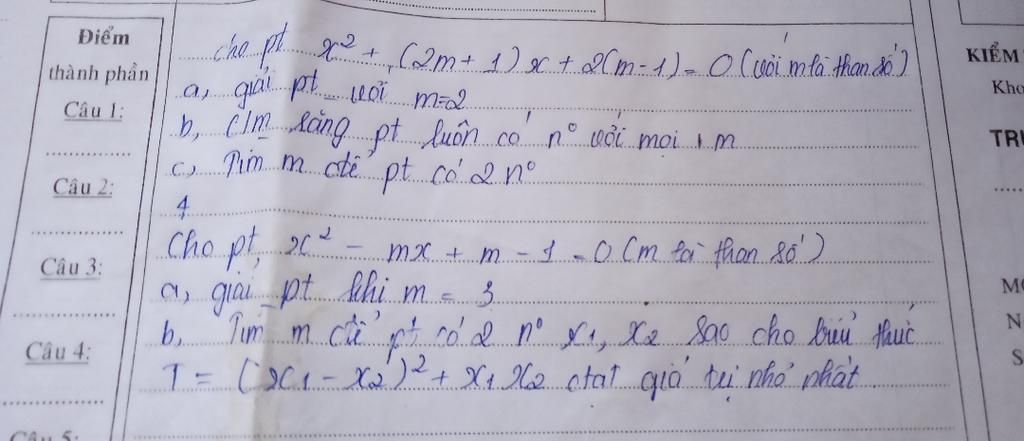 Điểm
thành phần
Câu 1:
Câu 2:
Câu 3:
Câu 4:
Câu 5:
cho pt x² + (2m + 1)x + 2(m - 1) = 0 (với m là tham số)
a, giải pt với m=2
b, C/m rằng pt luôn có n° với mọi m
c, Tìm m để pt có 2 n°
4
Cho pt, x² - mx + m - 1 = 0 (m là tham số)
a, giải pt khi m = 3
b, Tìm m để pt có 2 n° x1, x2 sao cho biểu thức
T = (x1 - x2)² + x1 x2 đạt giá trị nhỏ nhất.
KIỂM
Kho
TRƯ
MÔ
N
S